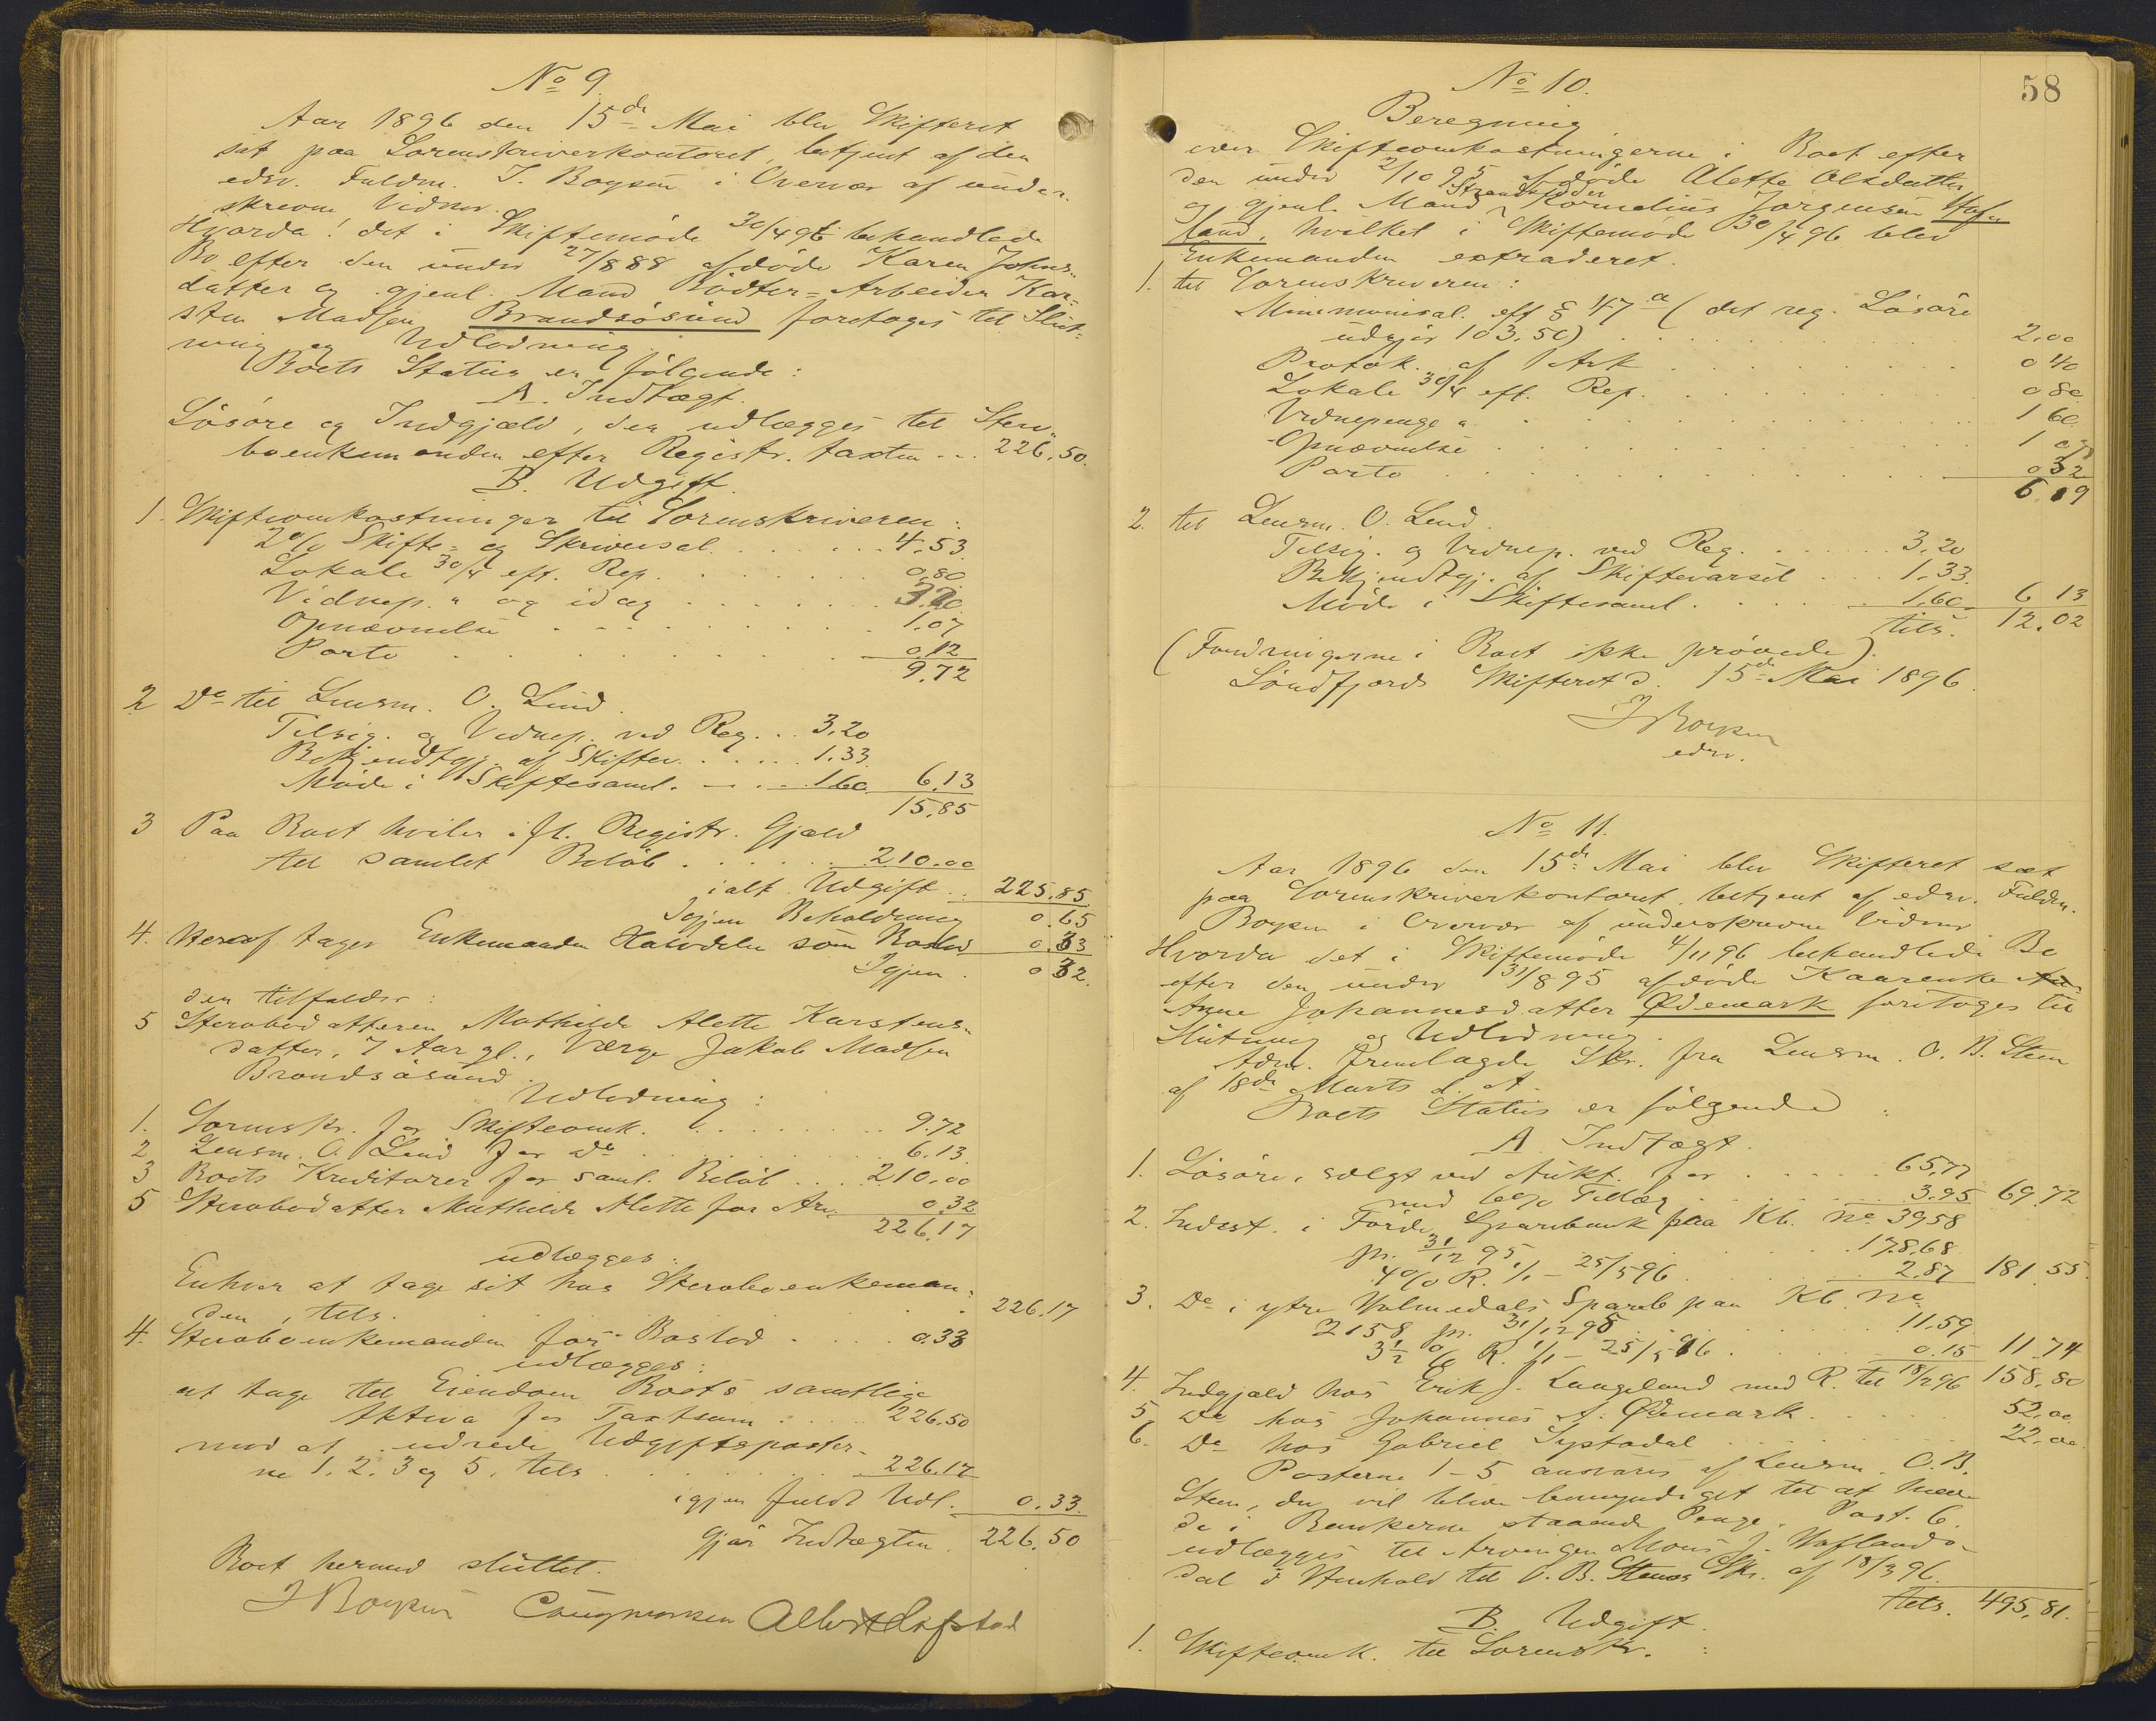 No 9.
Aar 1896 den 15de Mai blev Skifteret
sat paa Sorenskriverkontoret, betjent af den
edsv. Fuldm. J. Boysen i Overvær af under-
skrevne Vidner.
Hvorda! det i Skiftemöde 30/4 96 behandlede
Bo efter den under 27/8 88 afdöde Karen Johns-
datter og gjenl. Mand Rödter-Arbeider Kar-
sten Madsen Brandsösund foretoges til Slut-
ning og Udlodning.
Boets Status er fölgende:
A. Indtægt.
Lösöre og Indgjæld, der udlægges til Sterv-
boenkemanden efter Registr. taxten ... 226,50.
B. Udgift.
1. Skifteomkostninger til Sorenskriveren:
2% Skifte- og Skriversal. . . . . . 4,53.
Lokale 30/4 eft. Rep. . . . . . 0,80.
Vidnep. " og idag . . . . . 3,20.
Opnævnelse . . . . . . 1,07
Porto . . . . . . 0,12
9,72
2 Do til Lensm. O. Lind.
Tilsig. og Vidnep. ved Reg. .. 3,20
Bekjendtgj. af Skiftev. . . . 1,33.
Möde i Skiftesaml. — . . 1,60. 6,13
15,85
3 Paa Boet hviler ifl. Registr. Gjæld
til samlet Belöb . . . . . 210,00
ialt Udgift .. 225,85.
Igjen Beholdning 0,65
4. Heraf tager Enkemanden Halvdelen som Boslod 0,33
Igjen . 0 32.
der tilfalder:
5 Stervbodatteren Mathilde Alette Karstens-
datter, 7 Aar gl., Værge Jakob Madsen
Brandsösund.
Udlodning:
1. Sorenskr. for Skifteomk. . . . . . . 9.72
2 Lensm. O. Lind for Do . . . . . . 6.13.
3 Boets Kreditorer for saml. Belöb . . . 210,00
5 Stervbodatter Mathilde Alette for Arv 0,32
226,17
udlægges:
Enhver at tage sit hos Stervboenkeman-
den, tils. . . . . . 226,17
4. Stervboenkemanden for Boslod . . . . 0.33
udlægges:
at tage til Eiendom Boets samtlige
Aktiva for Taxtsum . . . . 226.50
mod at udrede Udgiftsposter-
ne 1. 2. 3 og 5, tils . . . . . 226.17
igjen fuldt Udl. 0.33.
Gjör Indtægten. 226.50
Boet hermed sluttet.
J Boysen Albert Hafstad
58
No 10.
Beregning
over Skifteomkostningerne i Boet efter
den under 2/10 95 afdöde Alette Olsdatter
Strandsidder
og gjenl. Mand Kornelius Jörgensen Hafs-
land, hvilket i Skiftemöde 30/4 96 blev
Enkemanden extraderet.
1. til Sorenskriveren:
Minimumsal. eft § 47 a (det reg. Lösöre
udgjör 103.50) . . . . . 2,00
Protok. af 1 Ark . . . . . 0 40
Lokale 30/4 eft. Rep. . . . . . 0 80
Vidnepenge " . . . . . . 1 60.
Opnævnelse . . . . . . 1 07
Porto . . . . . . 0 32
6.19
2. til Lensm. O. Lind.
Tilsig. og Vidnep. ved Reg. . . . . . 3,20
Bekjendtgj. af Skiftevarsel . . . 1,33.
Möde i Skiftesaml. . . . . 1,60. 6 13
tils. 12.02
(Fordringerne i Boet ikke prövede).
Söndfjords Skifteret d. 15de Mai 1896.
J Boysen
edsv.
No 11.
Aar 1896 den 15de Mai blev Skifteret sat
paa Sorenskriverkontoret, betjent af edsv. Fuldm.
Boysen i Overvær af underskrevne Vidner
Hvorda det i Skiftemöde 4/11 96 behandlede Bo
efter den under 31/8 95 afdöde Kaarenke
Anne Johannesdatter Ødemark foretoges til
Slutning og Udlodning.
Adm. fremlagde Skr. fra Lensm. O. B. Steen
af 18de Marts d. A.
Boets Status er fölgende:
A Indtægt.
1. Lösöre, solgt ved Aukt. for . . . . . 65,77
med 6% Tillæg . . . . . 3.95 69,72
2. Indest. i Förde Sparebank paa Kb. No 3958
pr. 31/12 95, . . . . . 178,68
4% R. 1/1 - 25/5 96 . . . . . 2.87 181 55.
3. Do i ytre Holmedals Spareb paa Kb. No
2158 pr. 31/12 95 . . . . . 11.59
3 1/2 % R. 1/1 - 25/5 96 . . . . . 0.15 11.74
4. Indgjæld hos Erik J. Langeland med R. til 18/2 96 158,80
5 Do hos Johannes A. Ødemark . . . . . 52,00
6. Do hos Gabriel Systadal . . . . . 22,00.
Posterne 1-5 ansvares af Lensm. O. B.
Steen, der vil blive bemyndiget til at hæve
de i Bankerne staaende Penge. Post. 6.
udlægges til Arvingen Mons J. Haflands-
dal i Henhold til O. B. Steens Skr. af 18/3 96.
tils. 495,81.
B. Udgift.
1. Skifteomk. til Sorenskr. :